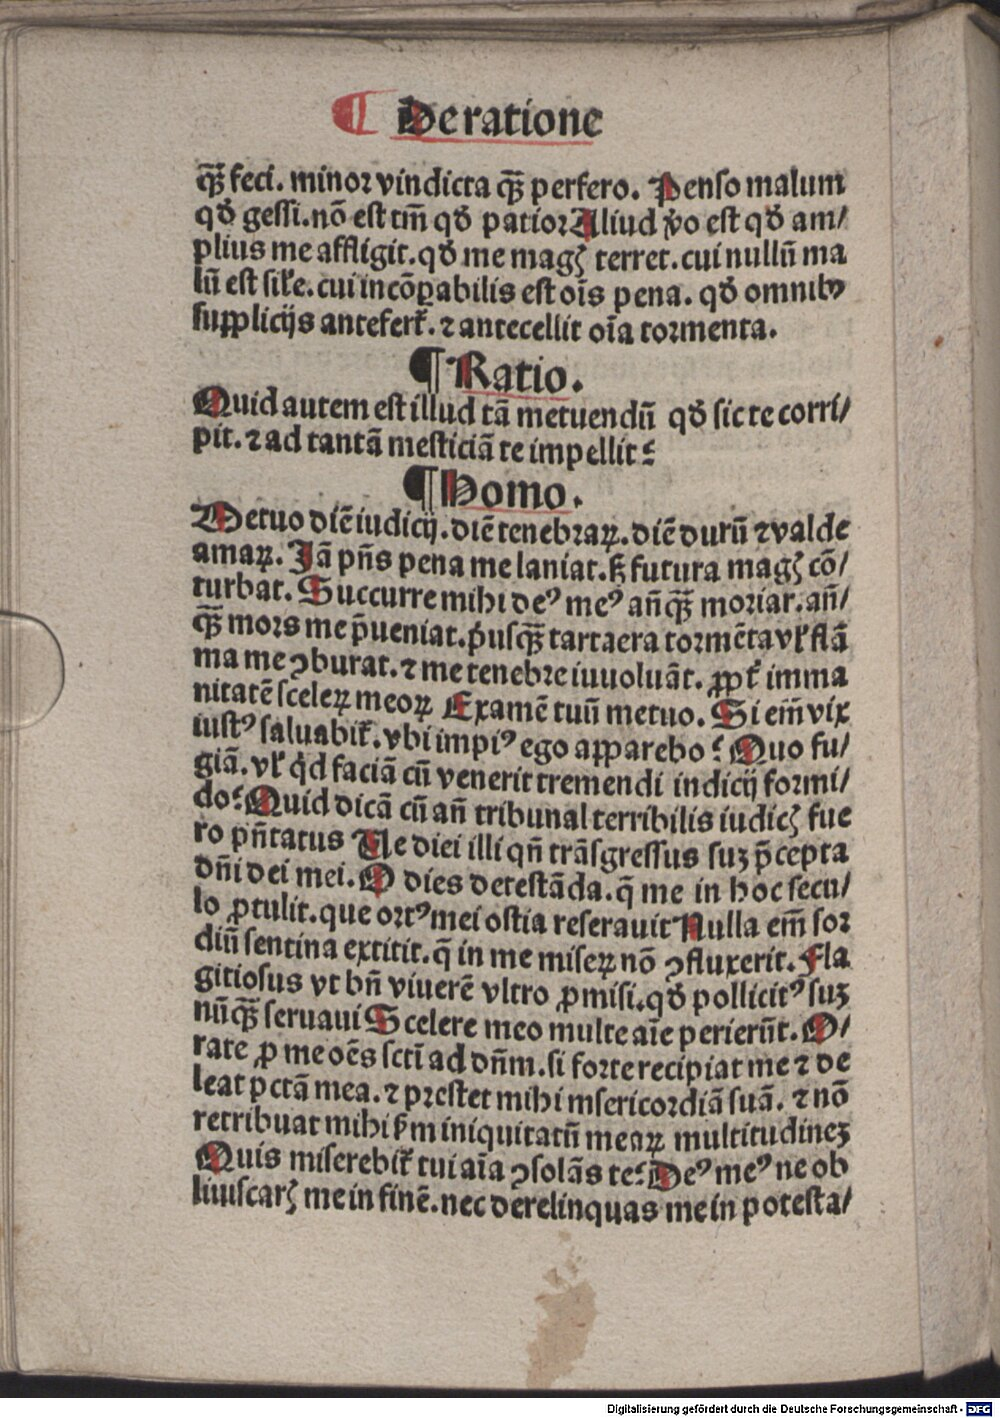 ¶ De ratione
qꝫ̃ feci. minor vindicta qꝫ̃ perfero. Penso malum
qð gessi. nõ est tm̃ qð patior Aliud ṽo est qð am/
plius me affligit. qð me magꝭ terret. cui nullũ ma
lũ est sil'e. cui incõꝑabilis est oĩs pena. qð omnibꝰ
supplicijs antefert᷑. ⁊ antecellit oĩa tormenta.
¶ Ratio.
Quid autem est illud tã metuendũ qð sic te corri/
pit. ⁊ ad tantã mesticiã te impellit?
¶ Homo.
Metuo diẽ iudicij. diẽ tenebraꝝ. diẽ durũ ⁊ valde
amaꝝ. Jã pñs pena me laniat. sꝫ futura magꝭ cõ/
turbat. Succurre mihi deꝰ meꝰ añqꝫ̃ moriar. añ/
qꝫ̃ mors me p̃ueniat. p̓usqꝫ̃ tartaera tormẽta vl' flã
ma me ꝯburat. ⁊ me tenebre iuuoluãt. ꝓpt᷑ imma
nitatẽ sceleꝝ meoꝝ Examẽ tuũ metuo. Si em̃ vix
iustꝰ saluabit᷑. vbi impiꝰ ego apparebo? Quo fu/
giã. vl' qd̓ faciã cũ venerit tremendi indicij formi/
do? Quid dicã cũ añ tribunal terribilis iudicꝭ fue
ro pñtatus Ue diei illi qñ trãsgressus suꝫ p̃cepta
dñi dei mei. O dies detestãda. q̃ me in hoc secu/
lo ꝓtulit. que ortꝰ mei ostia reserauit Nulla em̃ sor
diũ sentina extitit. q̃ in me miseꝝ nõ ꝯfluxerit. Fla
gitiosus vt bñ viuerẽ vltro ꝓmisi. qð pollicitꝰ suꝫ
nũqꝫ̃ seruaui Scelere meo multe aĩe perierũt. O/
rate ꝓ me oẽs sctĩ ad dñm. si forte recipiat me ⁊ de
leat pctã mea. ⁊ prestet mihi msericordiã suã. ⁊ nõ
retribuat mihi ẜm iniquitatũ meaꝝ multitudineꝫ
Quis miserebit᷑ tui aĩa ꝯsolãs te? Deꝰ meꝰ ne ob
liuiscarꝭ me in finẽ. nec derelinquas me in potesta/
Digitalisierung gefördert durch die Deutsche Forschungsgemeinschaft - DFG